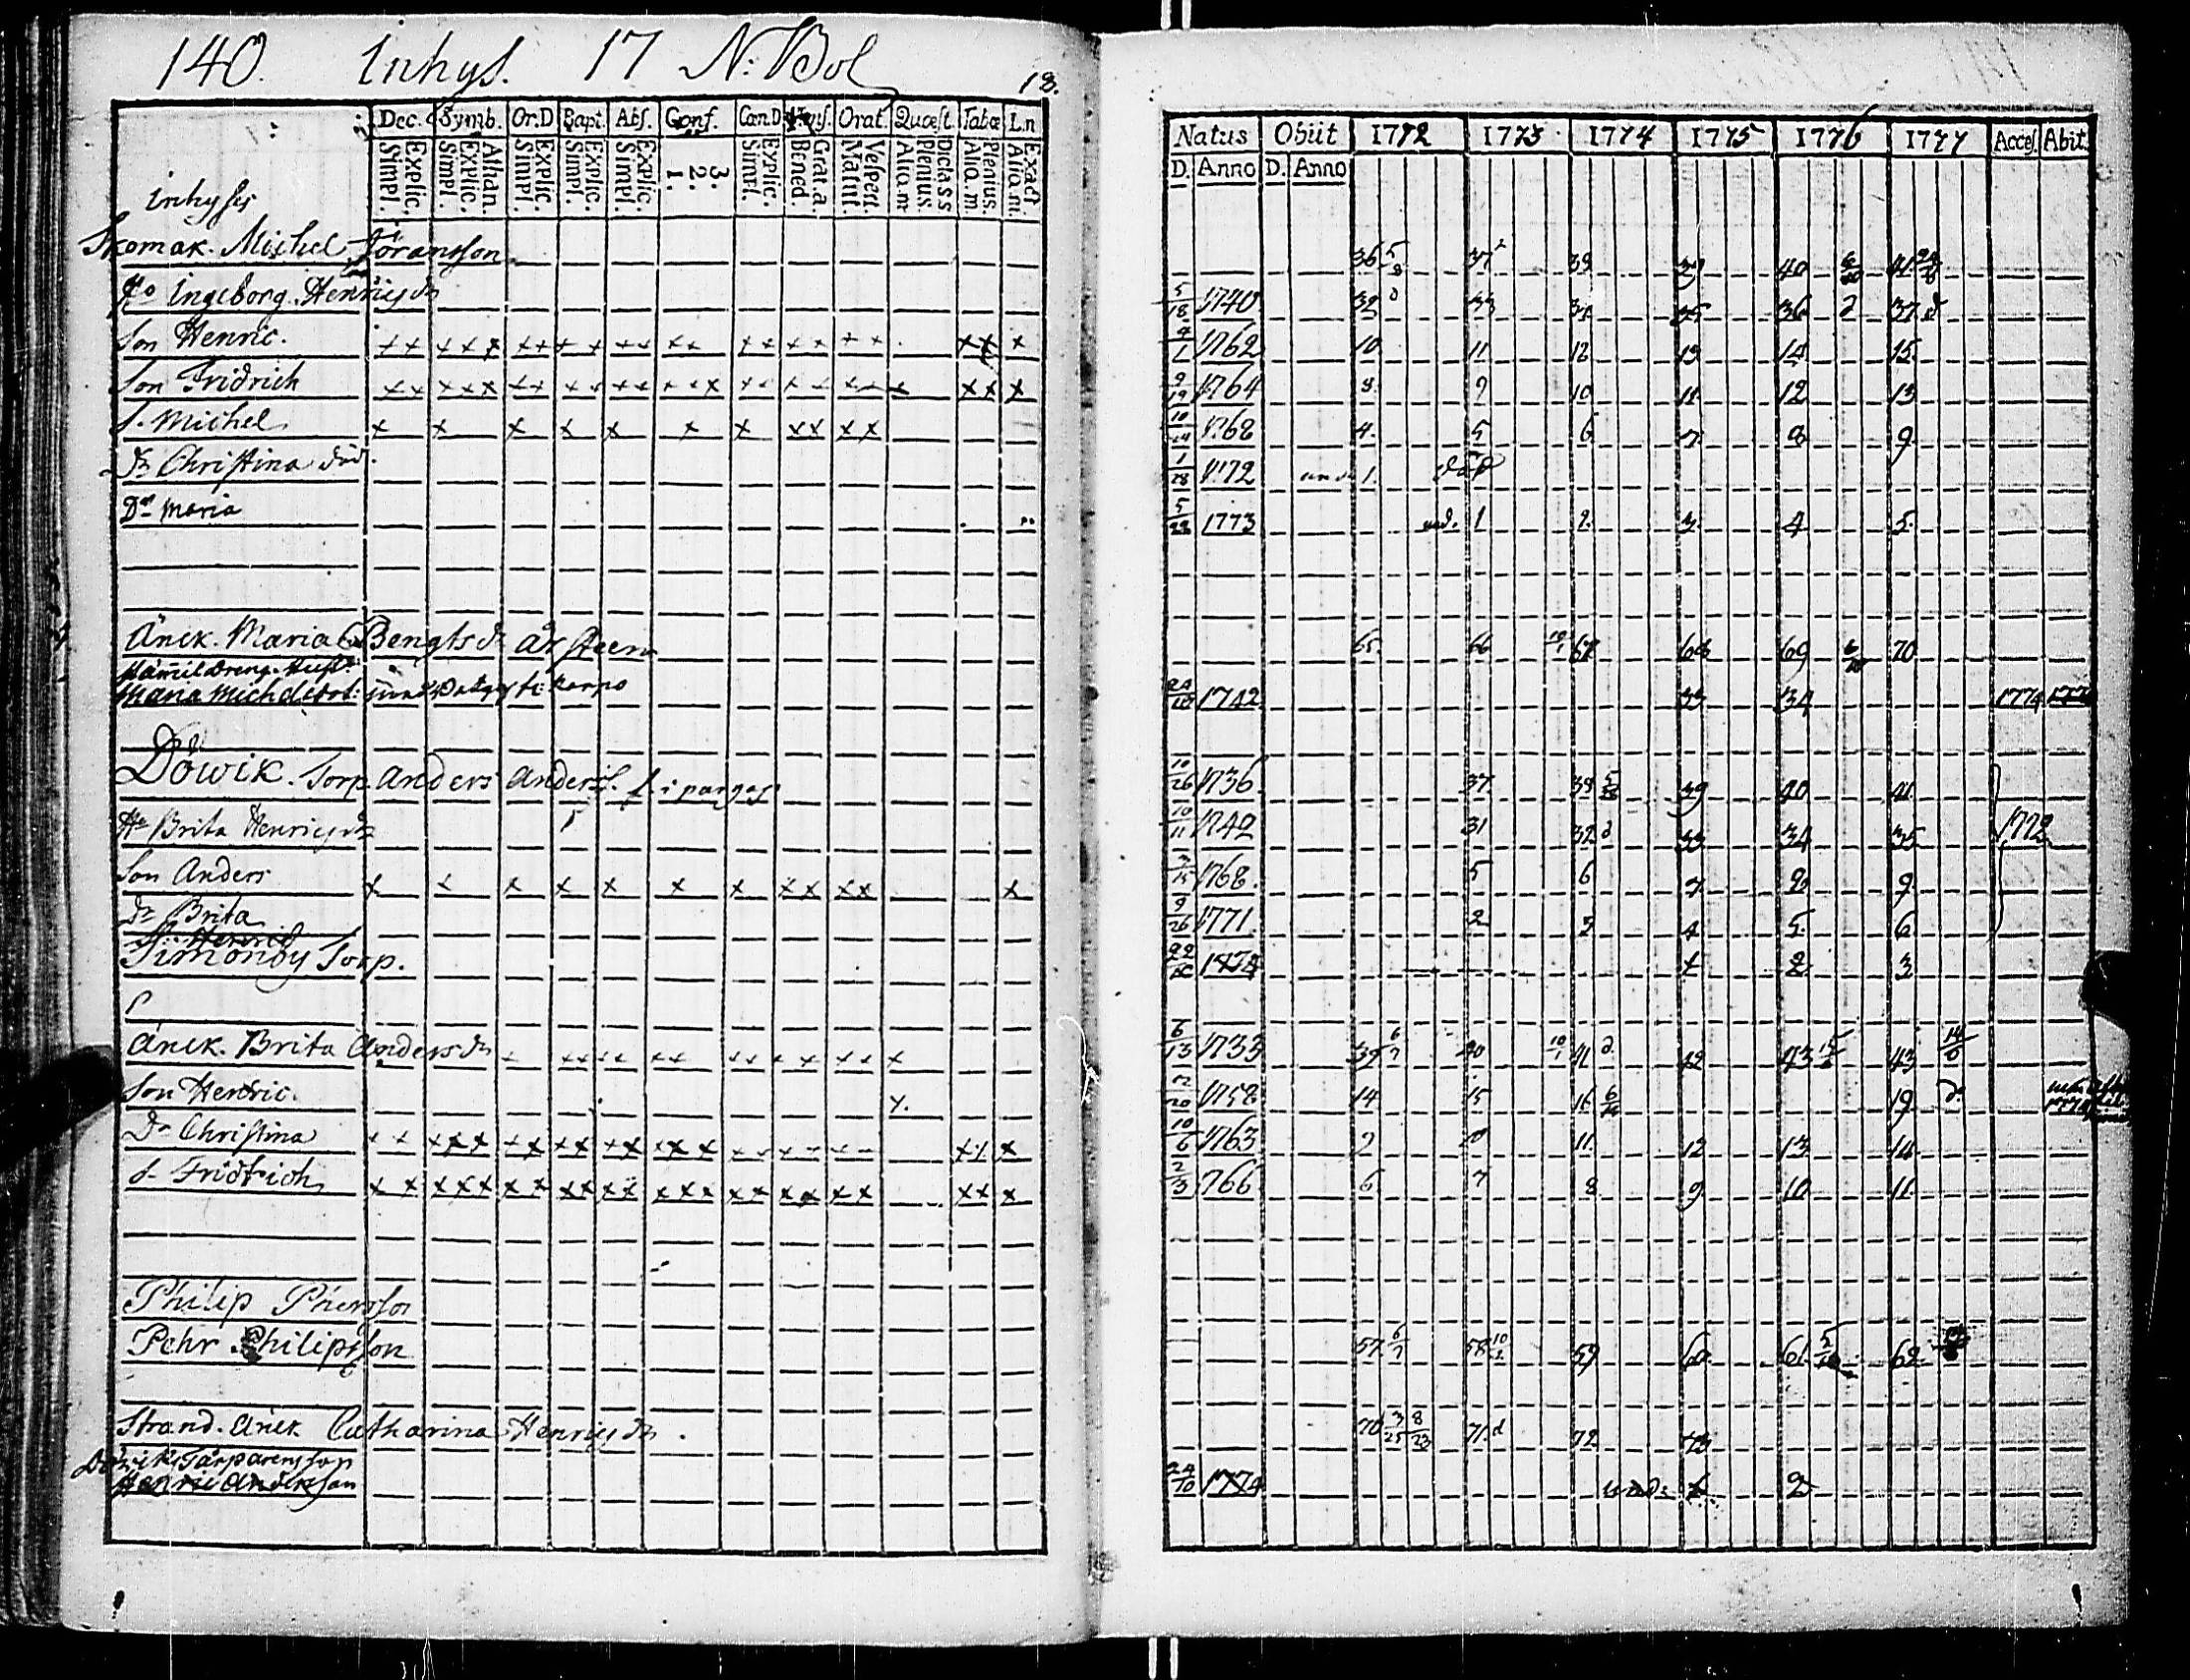 140. Inhys. 17 N: Bol
18.
Dec. Symb. Or.D Bapt. Abs. Conf. Cœn.D Mens. Orat. Quæst. Tabœ L.n
Explic. Simpl. Athan. Explic. Simpl. Explic. Simpl. Explic. Simpl. Explic. Simpl. 3. 2. 1. Explic. Simpl. Grat. a. Bened. Vespert. Matut. Dicta SS Plenius. Aliq.m Plenius. Aliq.m. Exact. Aliq.m.
Inhyses
Skomak. Michel Jöransson
Ho Ingeborg Henricsdr
Son Henric.
Son Fridrich
S. Michel
Dr Christina död.
Dr Maria
Änck. Maria Bengtsdr
Maria Michelsdot:
Döwik. Torp Anders Anders. f. i pargas
Hu Brita Henricsdr
Son Anders
Dr Brita
S. Henric
Simonby Torp.
Änck. Brita Andersdr
Son Henric.
Dr Christina
S. Fridrich
Philip Phersson
Pehr Philipsson
Strand. Änck. Catharina Henricsdr.
Henric Andersson
Natus Obiit 1772 1773 1774 1775 1776 1777 Acces. Abit.
D. Anno D. Anno
36 5/8 37 38 39 40 41
5/18 1740 32 33 34 35 36 37
4/1 1762 10 11 12 13 14 15
9/19 1764 8 9 10 11 12 13
10/24 1768 4. 5 6 7 8 9
1/28 1772 1. död
5/28 1773 und. 1 2 3 4 5
65. 66 10/1 67 68 69 70
24/10 1742 33 34 1774
10/26 1736 37 38 39 40 41
10/11 1742 31 32 33 34 35 1772
1768. 5 6 7 8 9
9/26 1771 2 3 4 5 6
1774 1 2 3
6/13 1733 39 6/7 40 10/1 41 42 43 43 14/6
1758 14 15 16 19
10/6 1763 9 10 11 12 13 14
2/3 1766 6 7 8 9 10 11
57 6/7 58 10/1 59 60 61 62
70 3/25 8/23 71 72 73
24/10 1774 und: 1 2